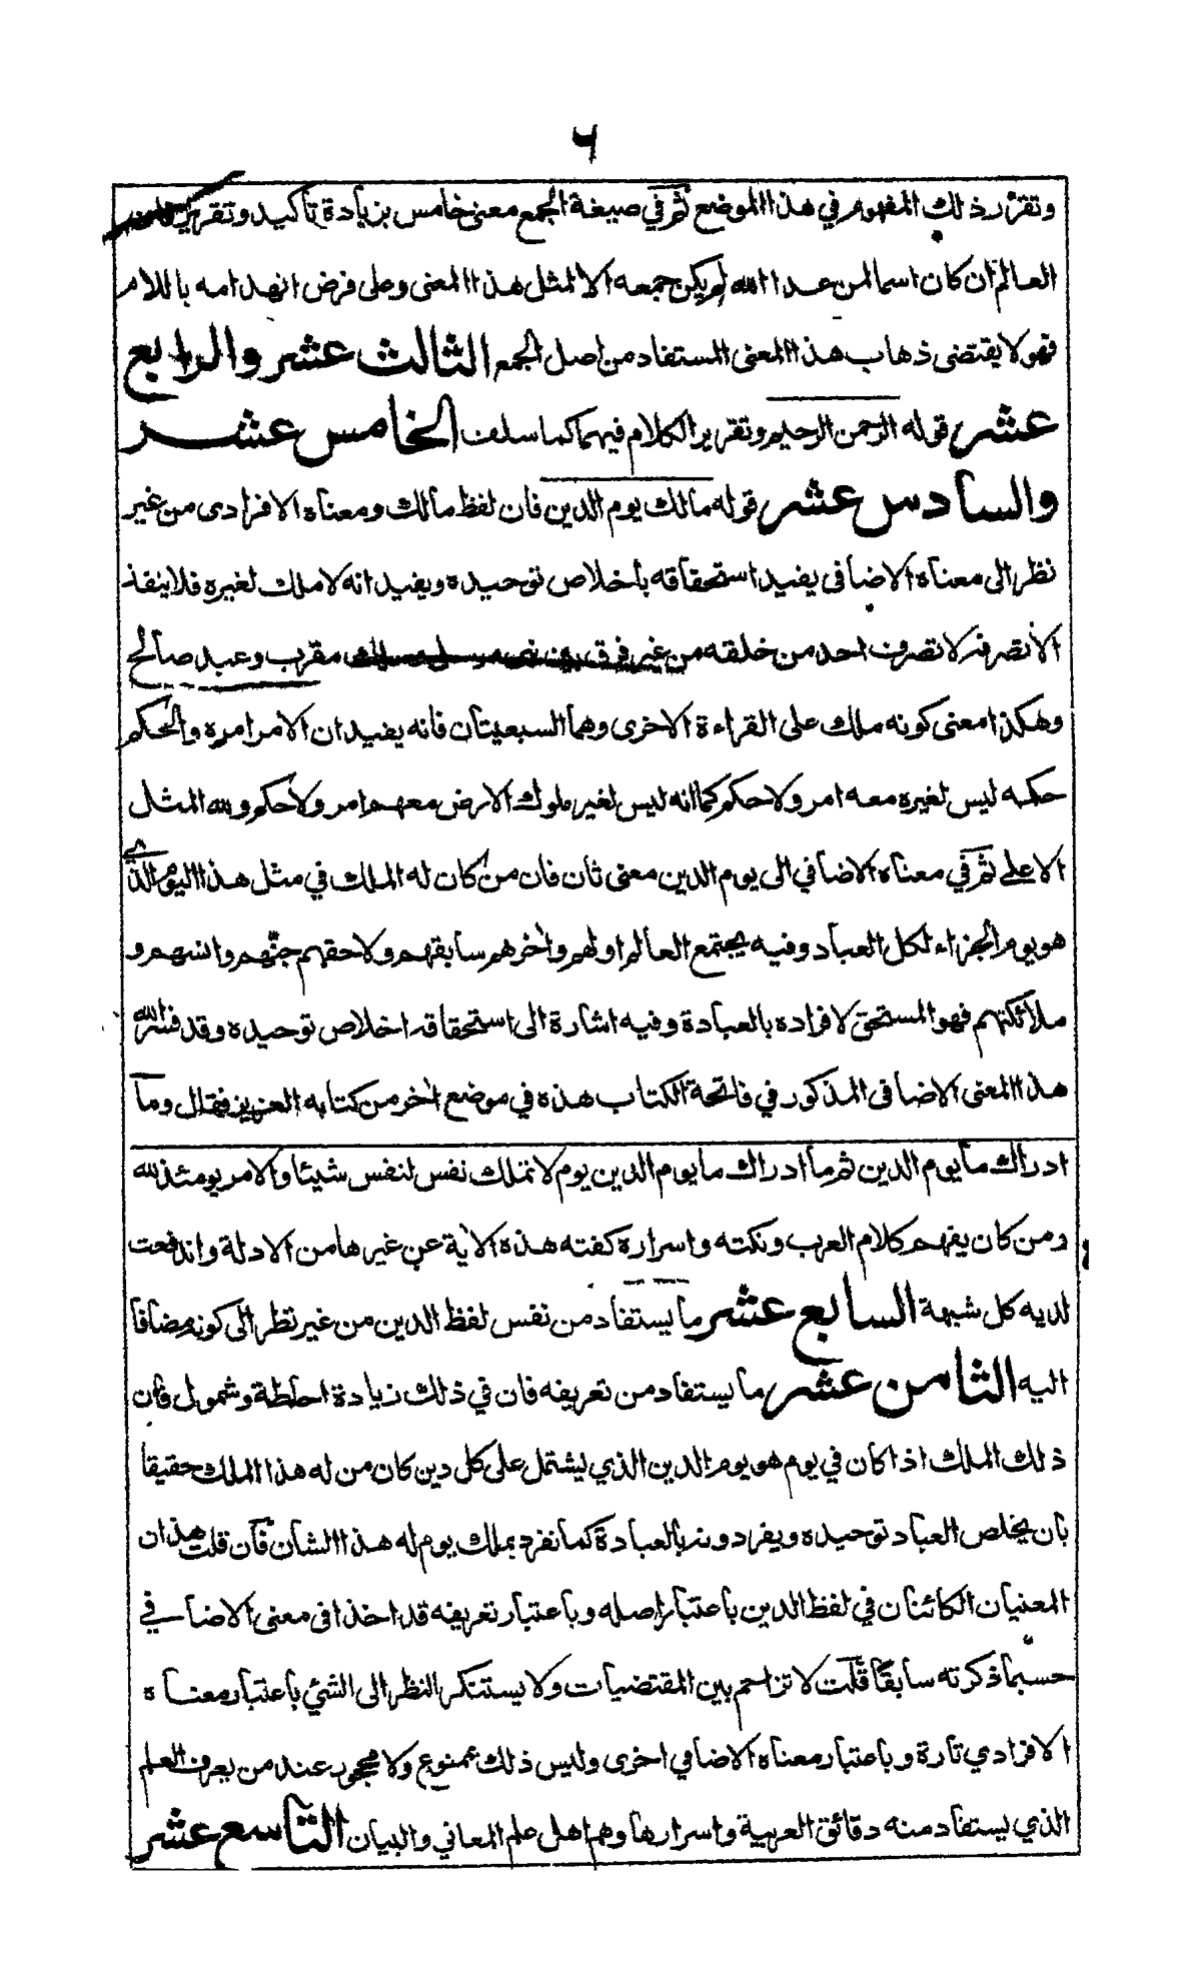 ٦
وتقرر ذلك المفهوم في هذا الموضع ثم في صيغة الجمع معنى خامس بزيادة تأكيد وتقرير
العالم ان كان اسما لمن عدا الله لم يكن جمعه الا لمثل هذا المعنى وعلى فرض انهدامه باللام
فهو لا يقتضى ذهاب هذا المعنى المستفاد من اصل الجمع الثالث عشر والرابع
عشر قوله الرحمن الرحيم وتقرير الكلام فيهما كما سلف الخامس عشر
والسادس عشر قوله مالك يوم الدين فان لفظ مالك ومعناه الافرادى من غير
نظر الى معناه الاضافى يفيد استحقاقه باخلاص توحيده ويفيد انه لا ملك لغيره فلا ينفذ
الا تصرفه لا تصرف احد من خلقه من غير فرق بين نبى مرسل وملك مقرب وعبد صالح
وهكذا معنى كونه ملك على القراءة الاخرى وهما السبعيتان فانه يفيد ان الامر امره والحكم
حكمه ليس لغيره معه امر ولا حكم كما انه ليس لغير ملوك الارض معهم امر ولا حكم ولله المثل
الاعلى ثم في معناه الاضافي الى يوم الدين معنى ثان فان من كان له الملك في مثل هذا اليوم الذي
هو يوم الجزاء لكل العباد وفيه يجتمع العالم اولهم واخرهم سابقهم ولا حقهم جنهم وانسهم و
ملائكتهم فهو المستحق لافراده بالعبادة وفيه اشارة الى استحقاقه اخلاص توحيده وقد فسر الله
هذا المعنى الاضافى المذكور في فاتحة الكتاب هذه في موضع اخر من كتابه العزيز فقال وما
ادراك ما يوم الدين ثم ما ادراك ما يوم الدين يوم لا تملك نفس لنفس شيئا والامر يومئذ لله
ومن كان يفهم كلام العرب ونكته واسراره كفته هذه الاية عن غيرها من الادلة واندفعت
لديه كل شبهة السابع عشر ما يستفاد من نفس لفظ الدين من غير نظر الى كونه مضافا
اليه الثامن عشر ما يستفاد من تعريفه فان في ذلك زيادة احاطة وشمول فان
ذلك الملك اذا كان في يوم هو يوم الدين الذي ليشتمل على كل دين كان من له هذا الملك حقيقا
بان يخلص العباد توحيده ويفردونه بالعبادة كما تفرد بملك يوم له هذا الشان فان قلت هذان
المعنيان الكائنان في لفظ الدين باعتبار اصله وباعتبار تعريفه قد اخذا فى معنى الاضافي
حسبما ذكرته سابقا قلت لا تزاحم بين المقتضيات ولا يستنكر النظر الى الشئ باعتبار معناه
الافرادي تارة وباعتبار معناه الاضافي اخرى وليس ذلك بممنوع ولا محجور عند من يعرف العلم
الذي يستفاد منه دقائق العربية واسرارها وهم اهل علم المعاني والبيان التاسع عشر